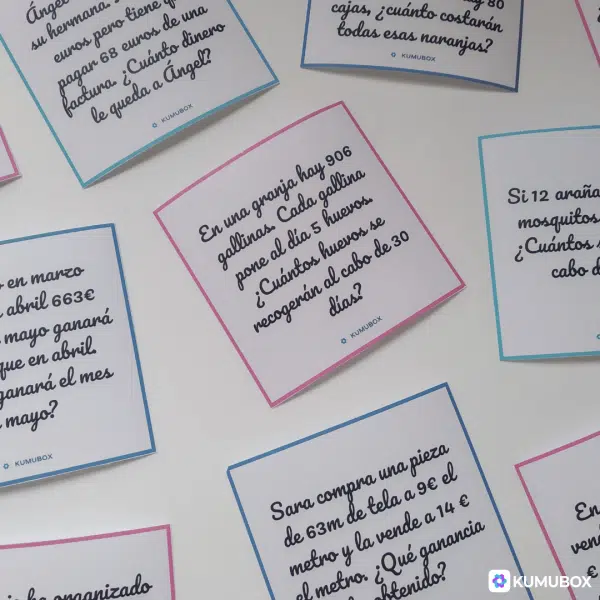 Ángel
su hermana.
euros pero tiene
pagar 68 euros de una
factura. ¿Cuánto dinero
le queda a Ángel?
KUMUBOX
80
cajas, ¿cuánto costarán
todas esas naranjas?
KUMUBOX
En una granja hay 906
gallinas. Cada gallina
pone al día 5 huevos.
¿Cuántos huevos se
recogerán al cabo de 30
días?
KUMUBOX
Si 12
mosquitos
¿Cuántos
cabo
en marzo
abril 663€
mayo ganará
que en abril.
ganará el mes
mayo?
KUMUBOX
Sara compra una pieza
de 63m de tela a 9€ el
metro y la vende a 14 €
el metro. ¿Qué ganancia
obtenido?
En
€
organizado
KUMUBOX